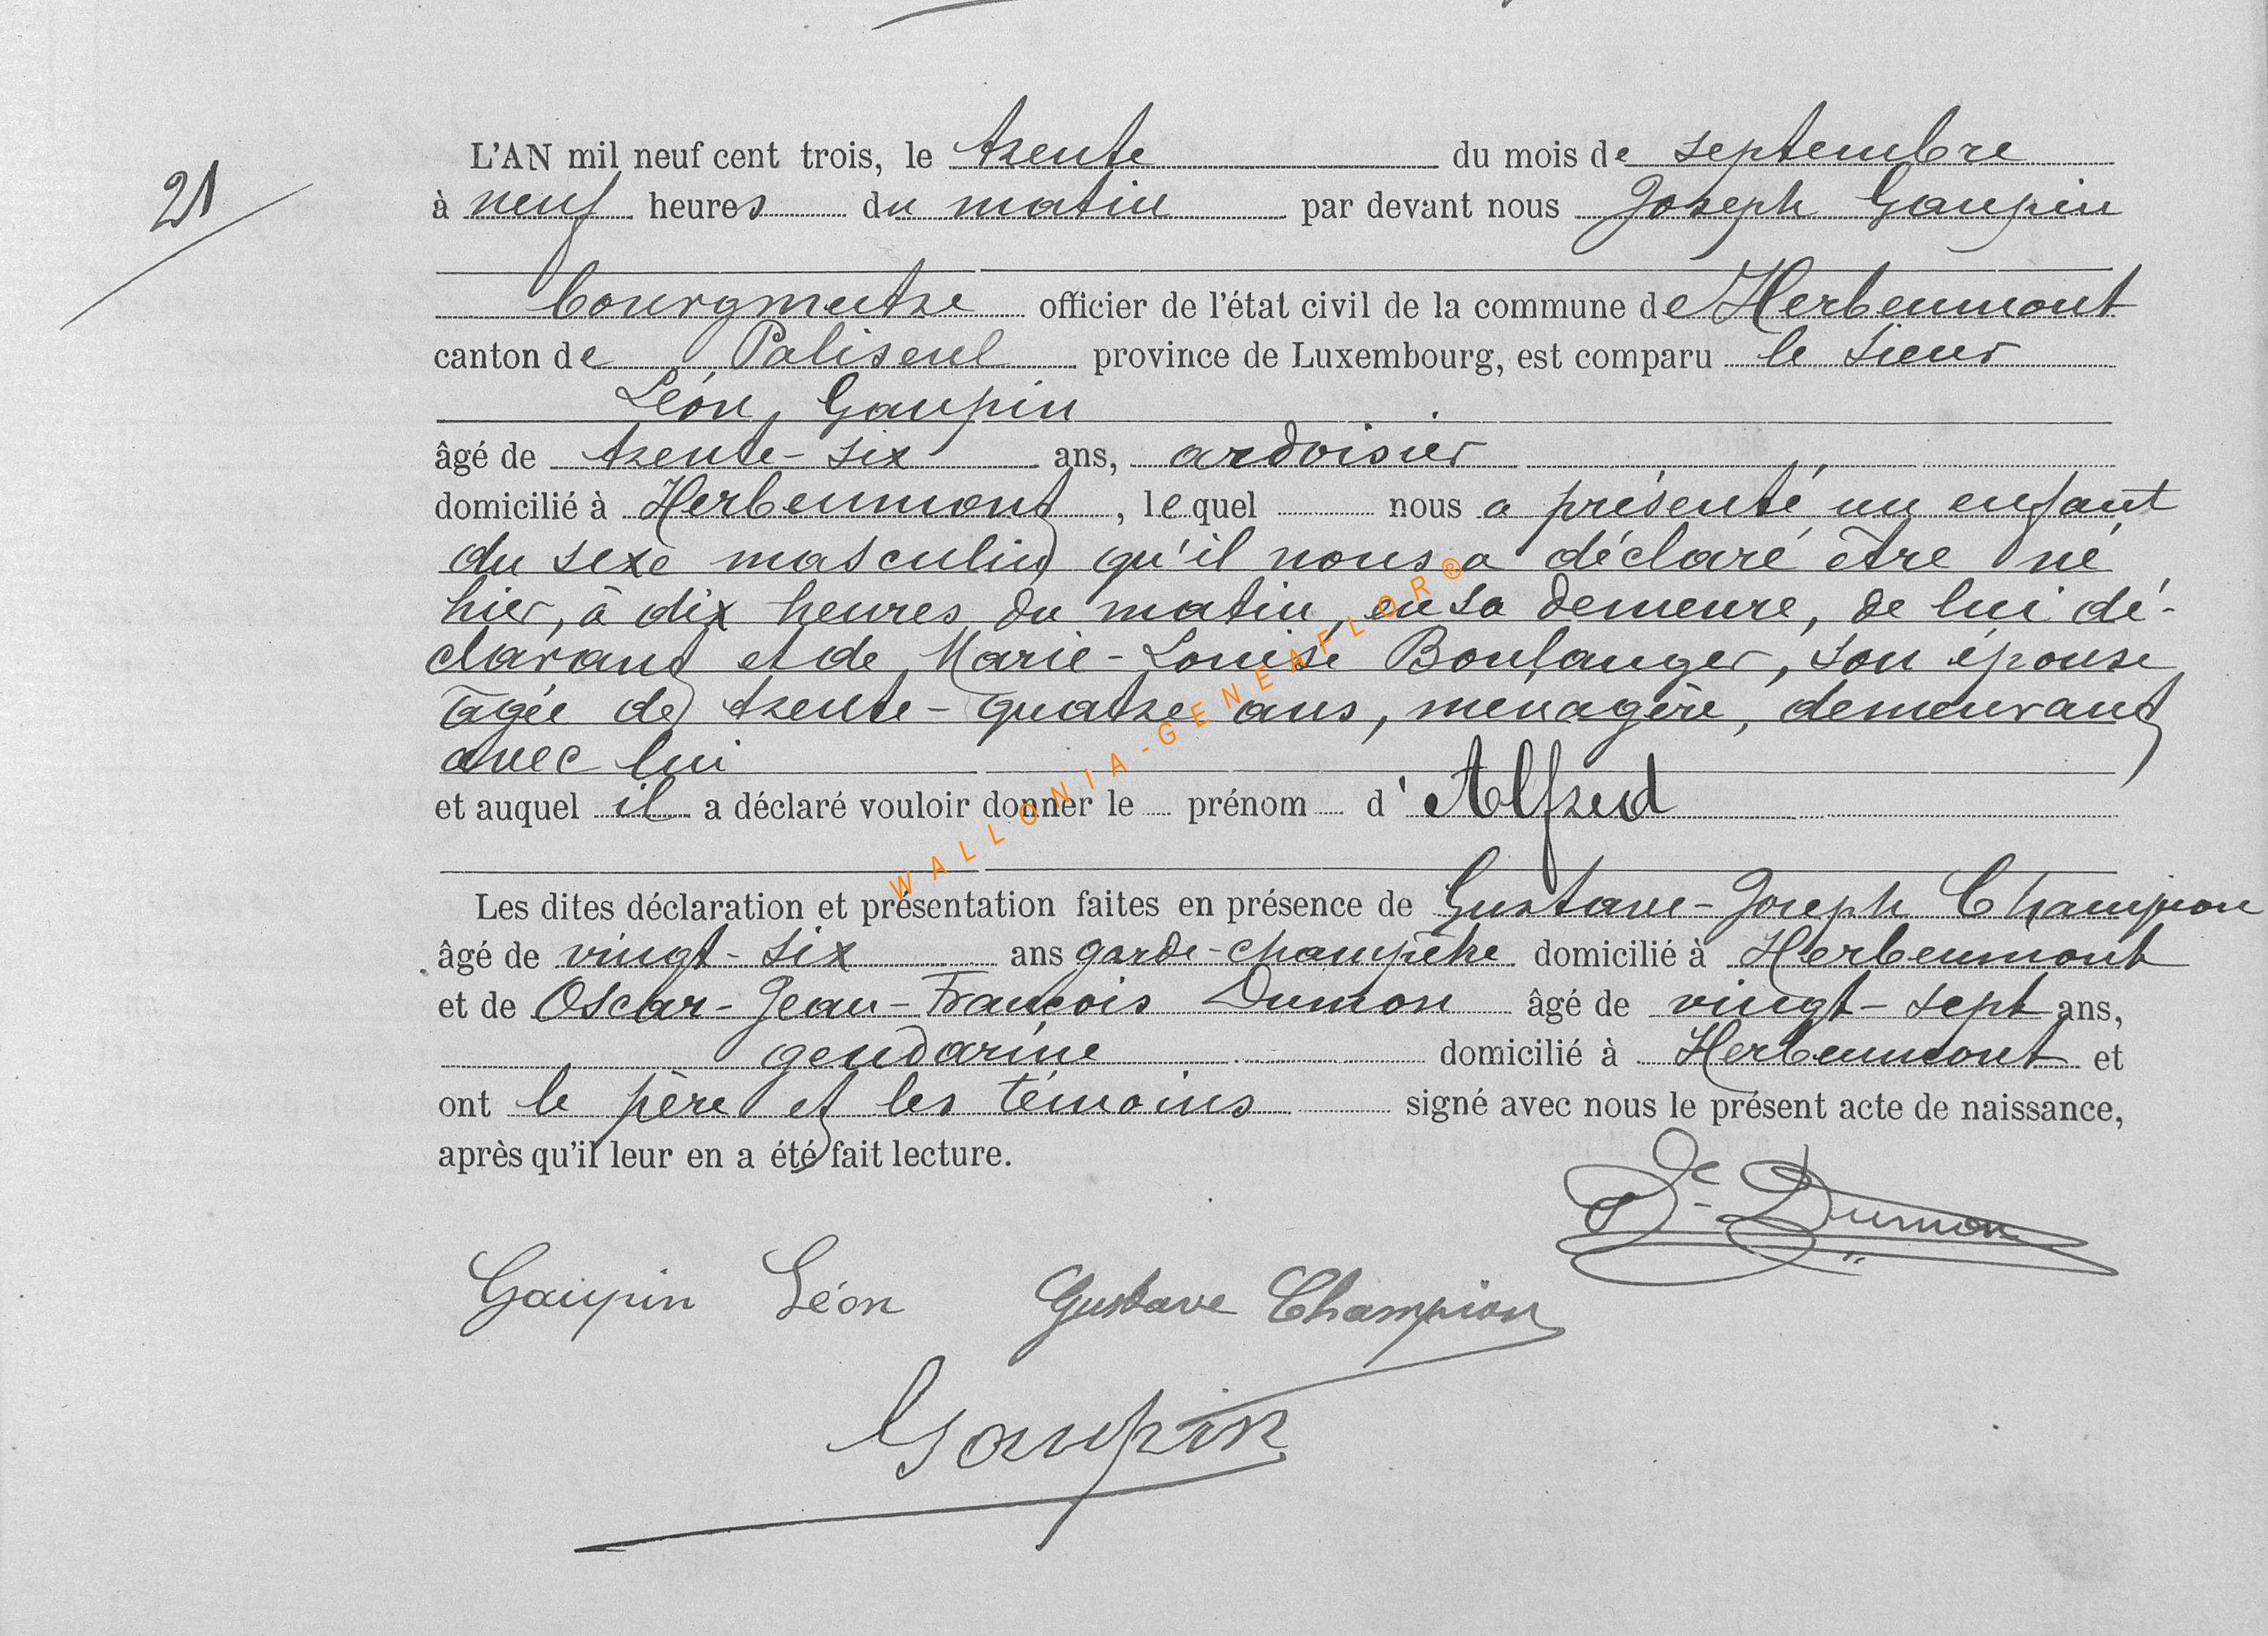 21
L'AN mil neuf cent trois, le trente du mois de septembre
à neuf heures du matin par devant nous Joseph Gaupin
bourgmestre officier de l'état civil de la commune de Herbeumont
canton de Paliseul province de Luxembourg, est comparu le sieur
Léon Gaupin
âgé de trente-six ans, ardoisier
domicilié à Herbeumont, lequel nous a présenté un enfant
du sexe masculin qu'il nous a déclaré être né
hier, à dix heures du matin, en sa demeure, de lui dé-
clarant et de Marie-Louise Boulanger, son épouse
âgée de trente-quatre ans, ménagère, demeurant
avec lui
et auquel il a déclaré vouloir donner le prénom d'Alfred
Les dites déclaration et présentation faites en présence de Gustave-Joseph Champion
âgé de vingt-six ans garde-champêtre domicilié à Herbeumont
et de Oscar-Jean-François Dumon âgé de vingt-sept ans,
gendarme domicilié à Herbeumont et
ont le père et les témoins signé avec nous le présent acte de naissance,
après qu'il leur en a été fait lecture.
Dumon
Gaupin Léon Gustave Champion
Gaupin
WALLONIA-GENEAFLOR®